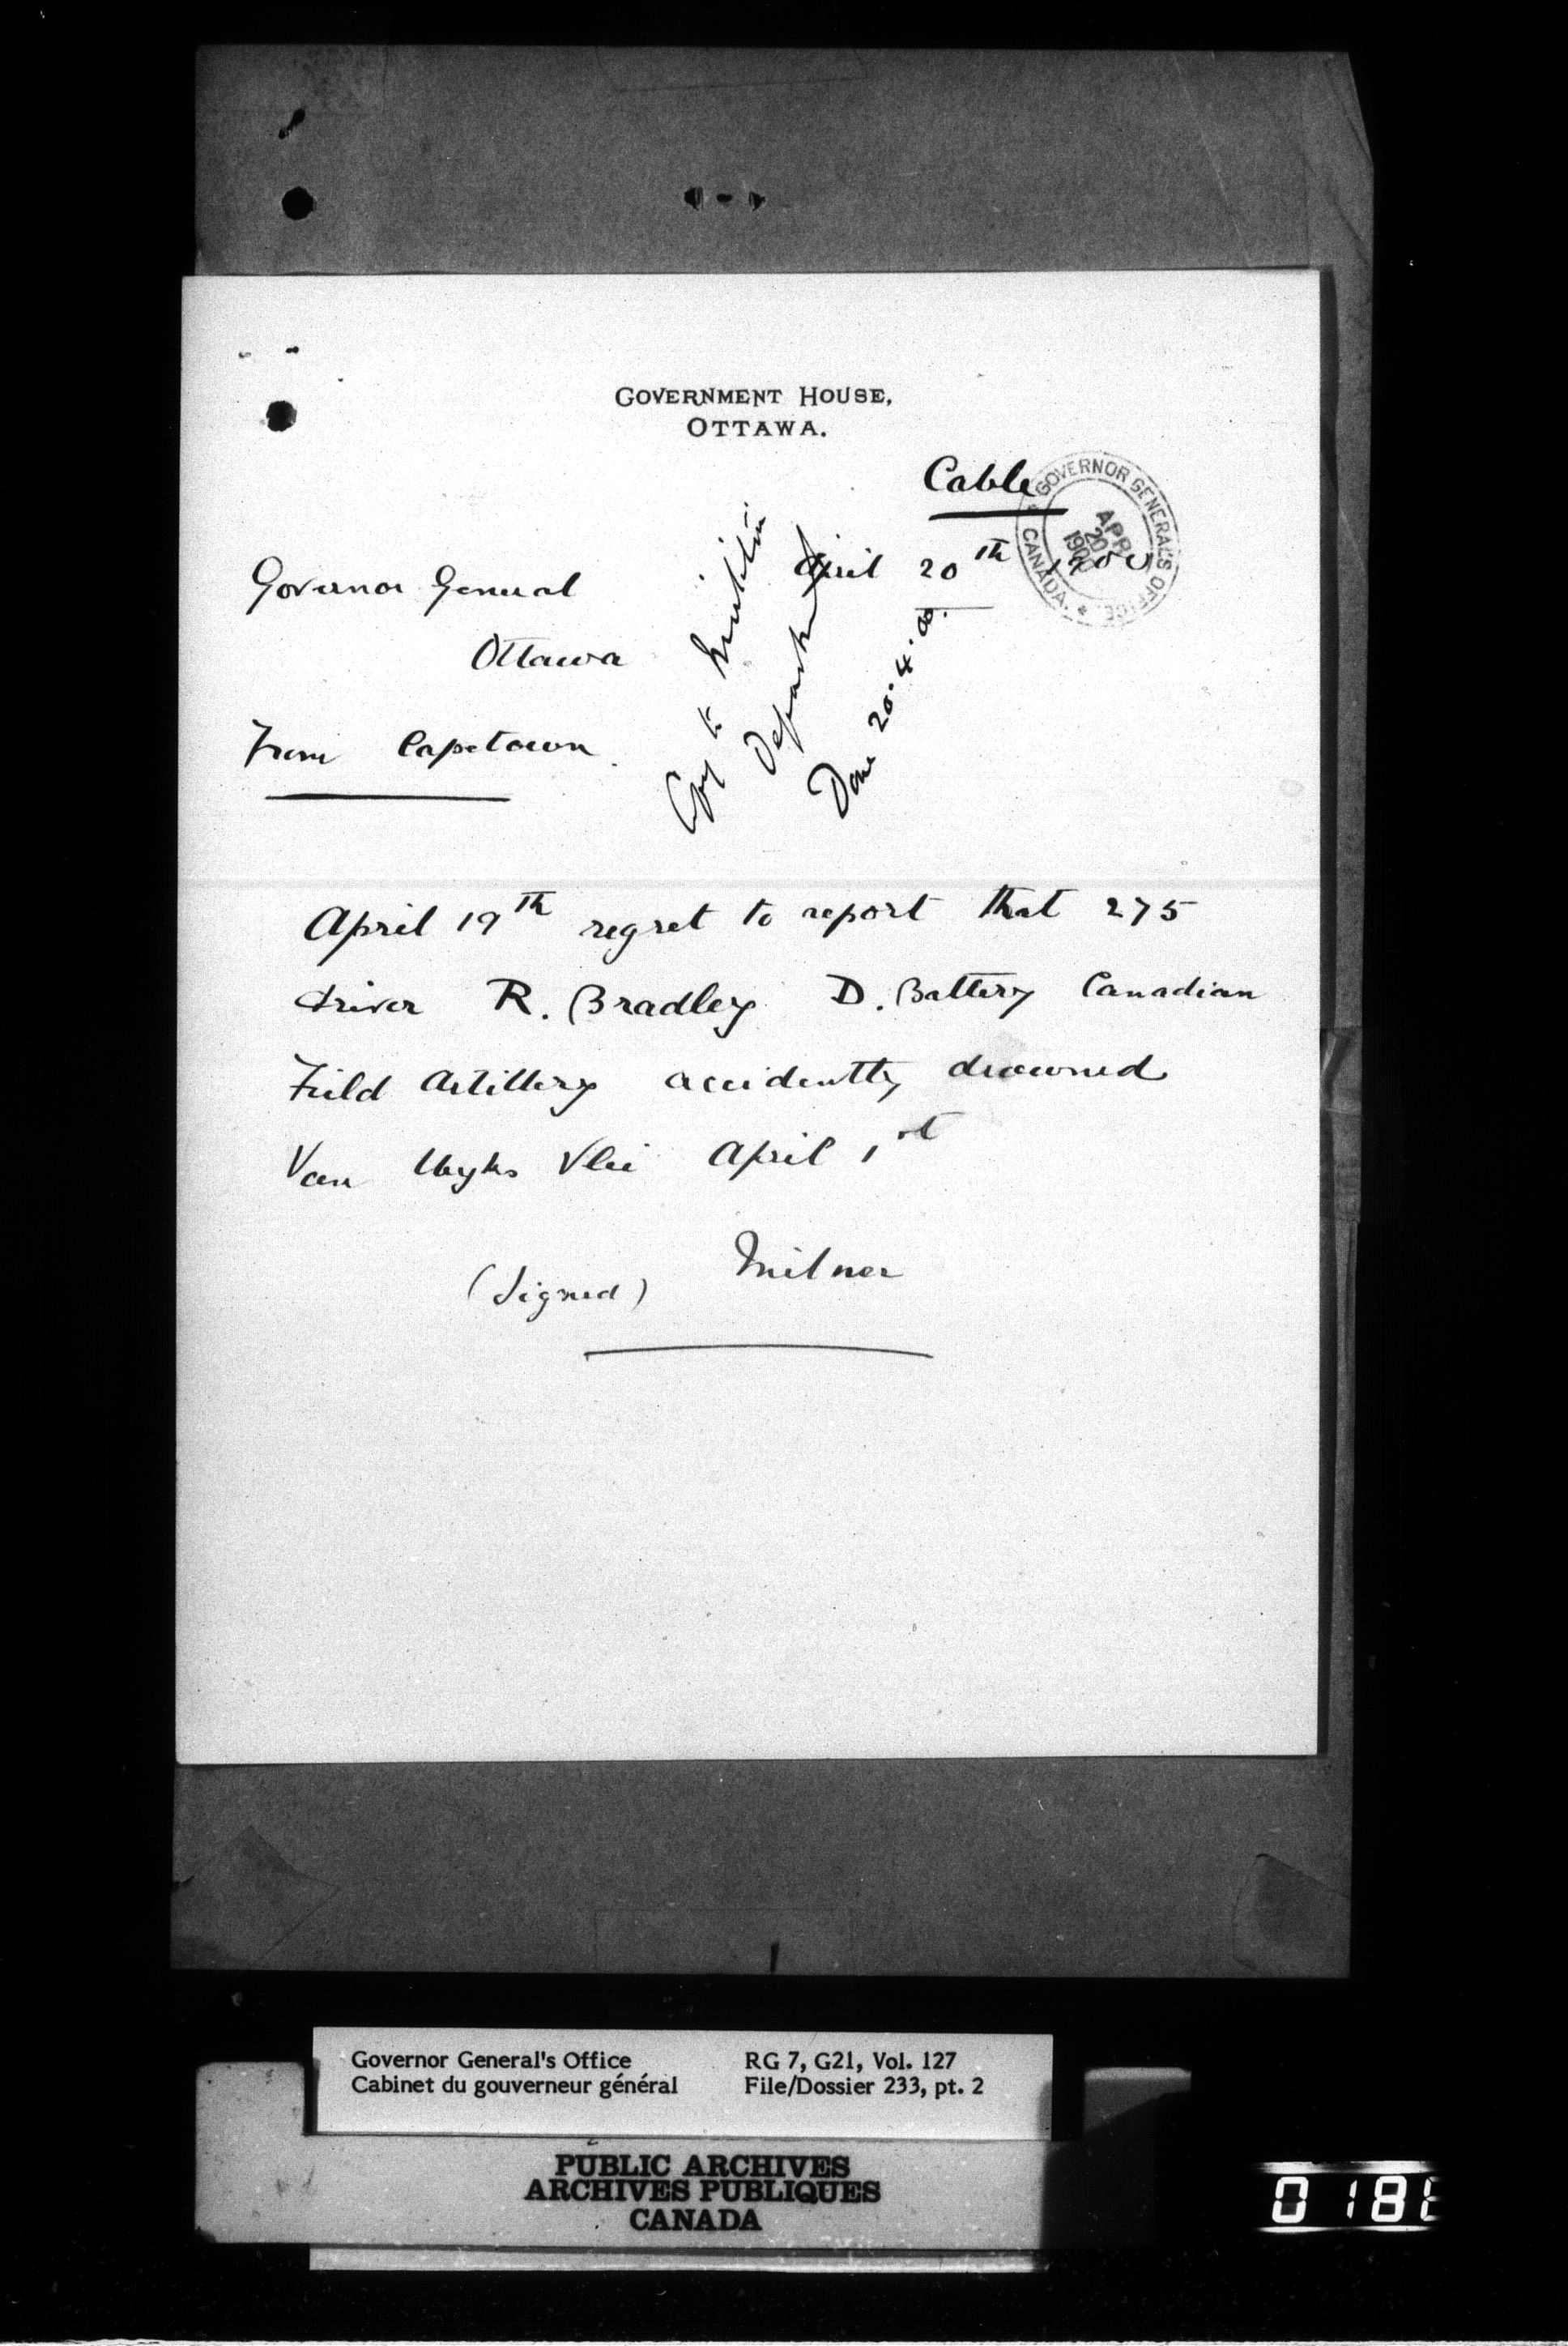 GOVERNMENT HOUSE,
OTTAWA.
Cable
GOVERNOR GENERAL'S OFFICE
APR
20
1900
CANADA.
April 20th 1900
Governor General
Ottawa
From Capetown.
Copy to Militia
Department
Done 20.4.00.
April 19th regret to report that 275
driver R. Bradley D. Battery Canadian
Field Artillery accidently drowned
Van Wyks Vlei April 1st
(Signed) Milner
Governor General's Office
Cabinet du gouverneur général
RG 7, G21, Vol. 127
File/Dossier 233, pt. 2
PUBLIC ARCHIVES
ARCHIVES PUBLIQUES
CANADA